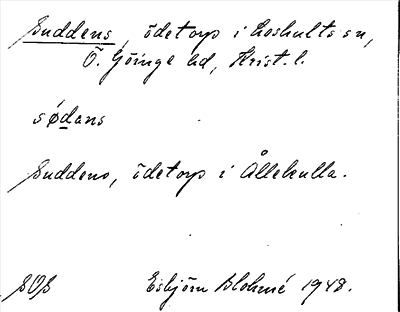 Suddens, ödetorp i Loshults sn,
Ö. Göinge hd, Krist. l.
sødans
Suddens, ödetorp i Ållekulla.
SOS Esbjörn Blohmé 1948.